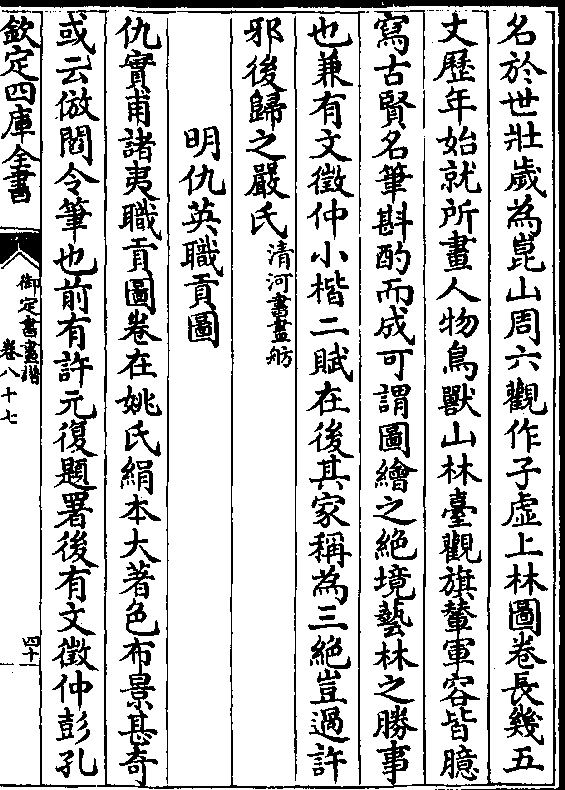 名於世壯歲為崑山周六觀作子虛上林圖卷長幾五
丈歷年始就所畫人物鳥獸山林臺觀旗輦軍容皆臆
寫古賢名筆斟酌而成可謂圖繪之絶境藝林之勝事
也兼有文徵仲小楷二賦在後其家稱為三絶豈過許
邪後歸之嚴氏清河書畫舫
明仇英職貢圖
仇實甫諸夷職貢圖卷在姚氏絹本大著色布景甚奇
或云倣閻令筆也前有許元復題署後有文徵仲彭孔
欽定四庫全書
御定書畫譜
卷八十七
四十